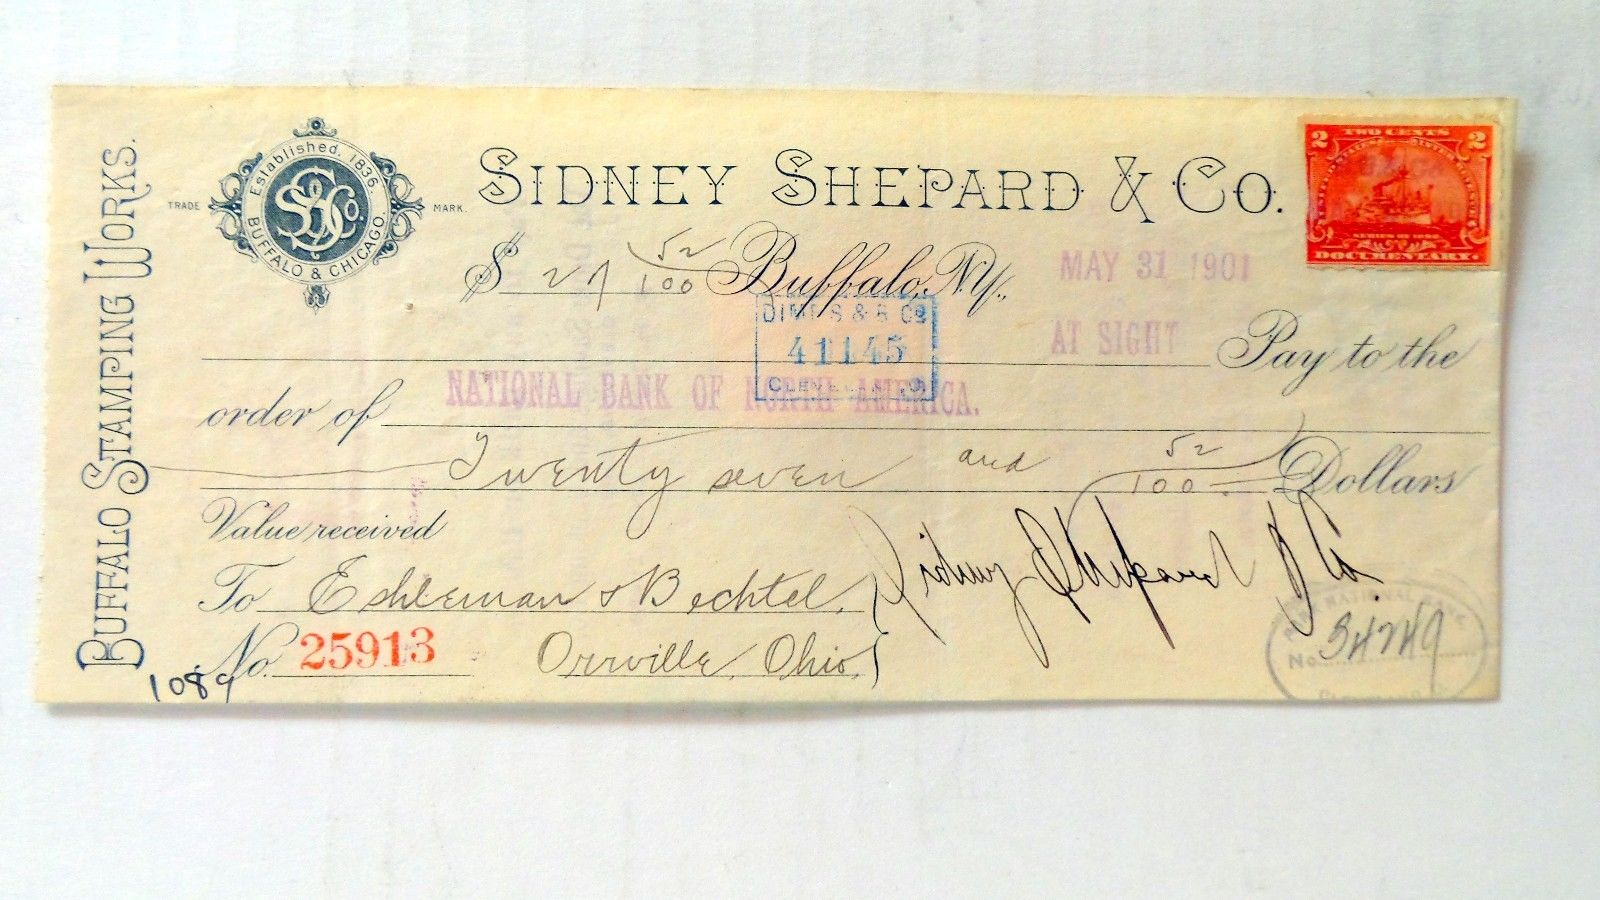 BUFFALO STAMPING WORKS.
Established. 1836.
SS&Co
BUFFALO & CHICAGO.
TRADE MARK.
SIDNEY SHEPARD & CO.
2 TWO CENTS 2
SERIES OF 1898
DOCUMENTARY
$ 27 52/100 Buffalo, N.Y., MAY 31 1901
DIME S & B Co
41145
CLEVELAND, O.
AT SIGHT Pay to the
order of NATIONAL BANK OF NORTH AMERICA.
Twenty seven and 52/100 Dollars
Value received
Sidney Shepard & Co.
To Eshleman & Bechtel,
No. 25913 Orrville, Ohio,
1089
NATIONAL BANK
No. 34749
CLEVELAND